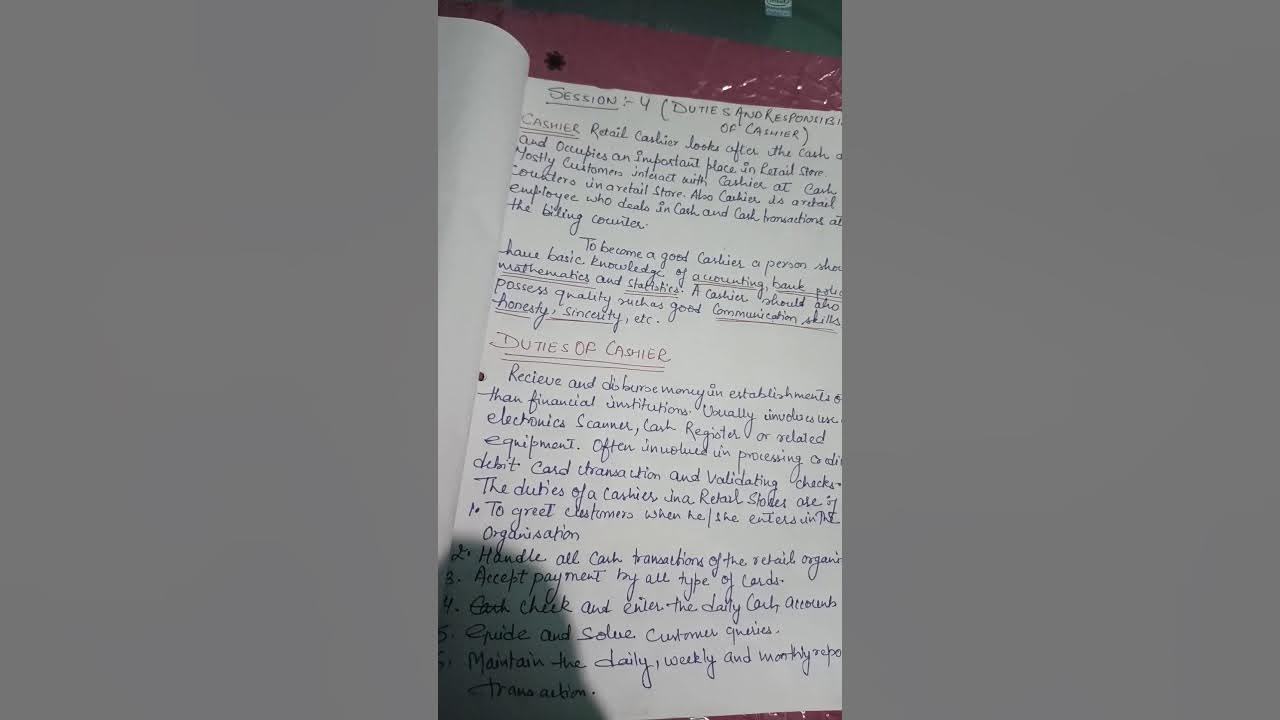 SESSION :- 4 (DUTIES AND RESPONSIBI
OF CASHIER)
CASHIER Retail Cashier looks after the cash
and Occupies an Important place in Retail Store.
Mostly Customers interact with Cashier at Cash
Counters in a retail Store. Also Cashier is a retail
employee who deals in Cash and Cash transactions at
the billing counter.
To become a good Cashier a person shou
have basic knowledge of accounting, bank polic
mathematics and statistics. A cashier should also
possess quality such as good Communication skills
honesty, sincerity, etc.
DUTIES OF CASHIER
Recieve and disburse money in establishments o
than financial institutions. Usually involves use
electronics Scanner, Cash Register or related
equipment. Often involved in processing credi
debit Card transaction and Validating checks.
The duties of a Cashier in a Retail Stores are :
1. To greet customers when he/she enters in the
Organisation
2. Handle all Cash transactions of the retail organi
3. Accept payment by all type of Cards.
4. Cash check and enter the daily Cash accounts
5. Guide and Solve Customer queries.
Maintain the daily, weekly and monthly repo
transaction.